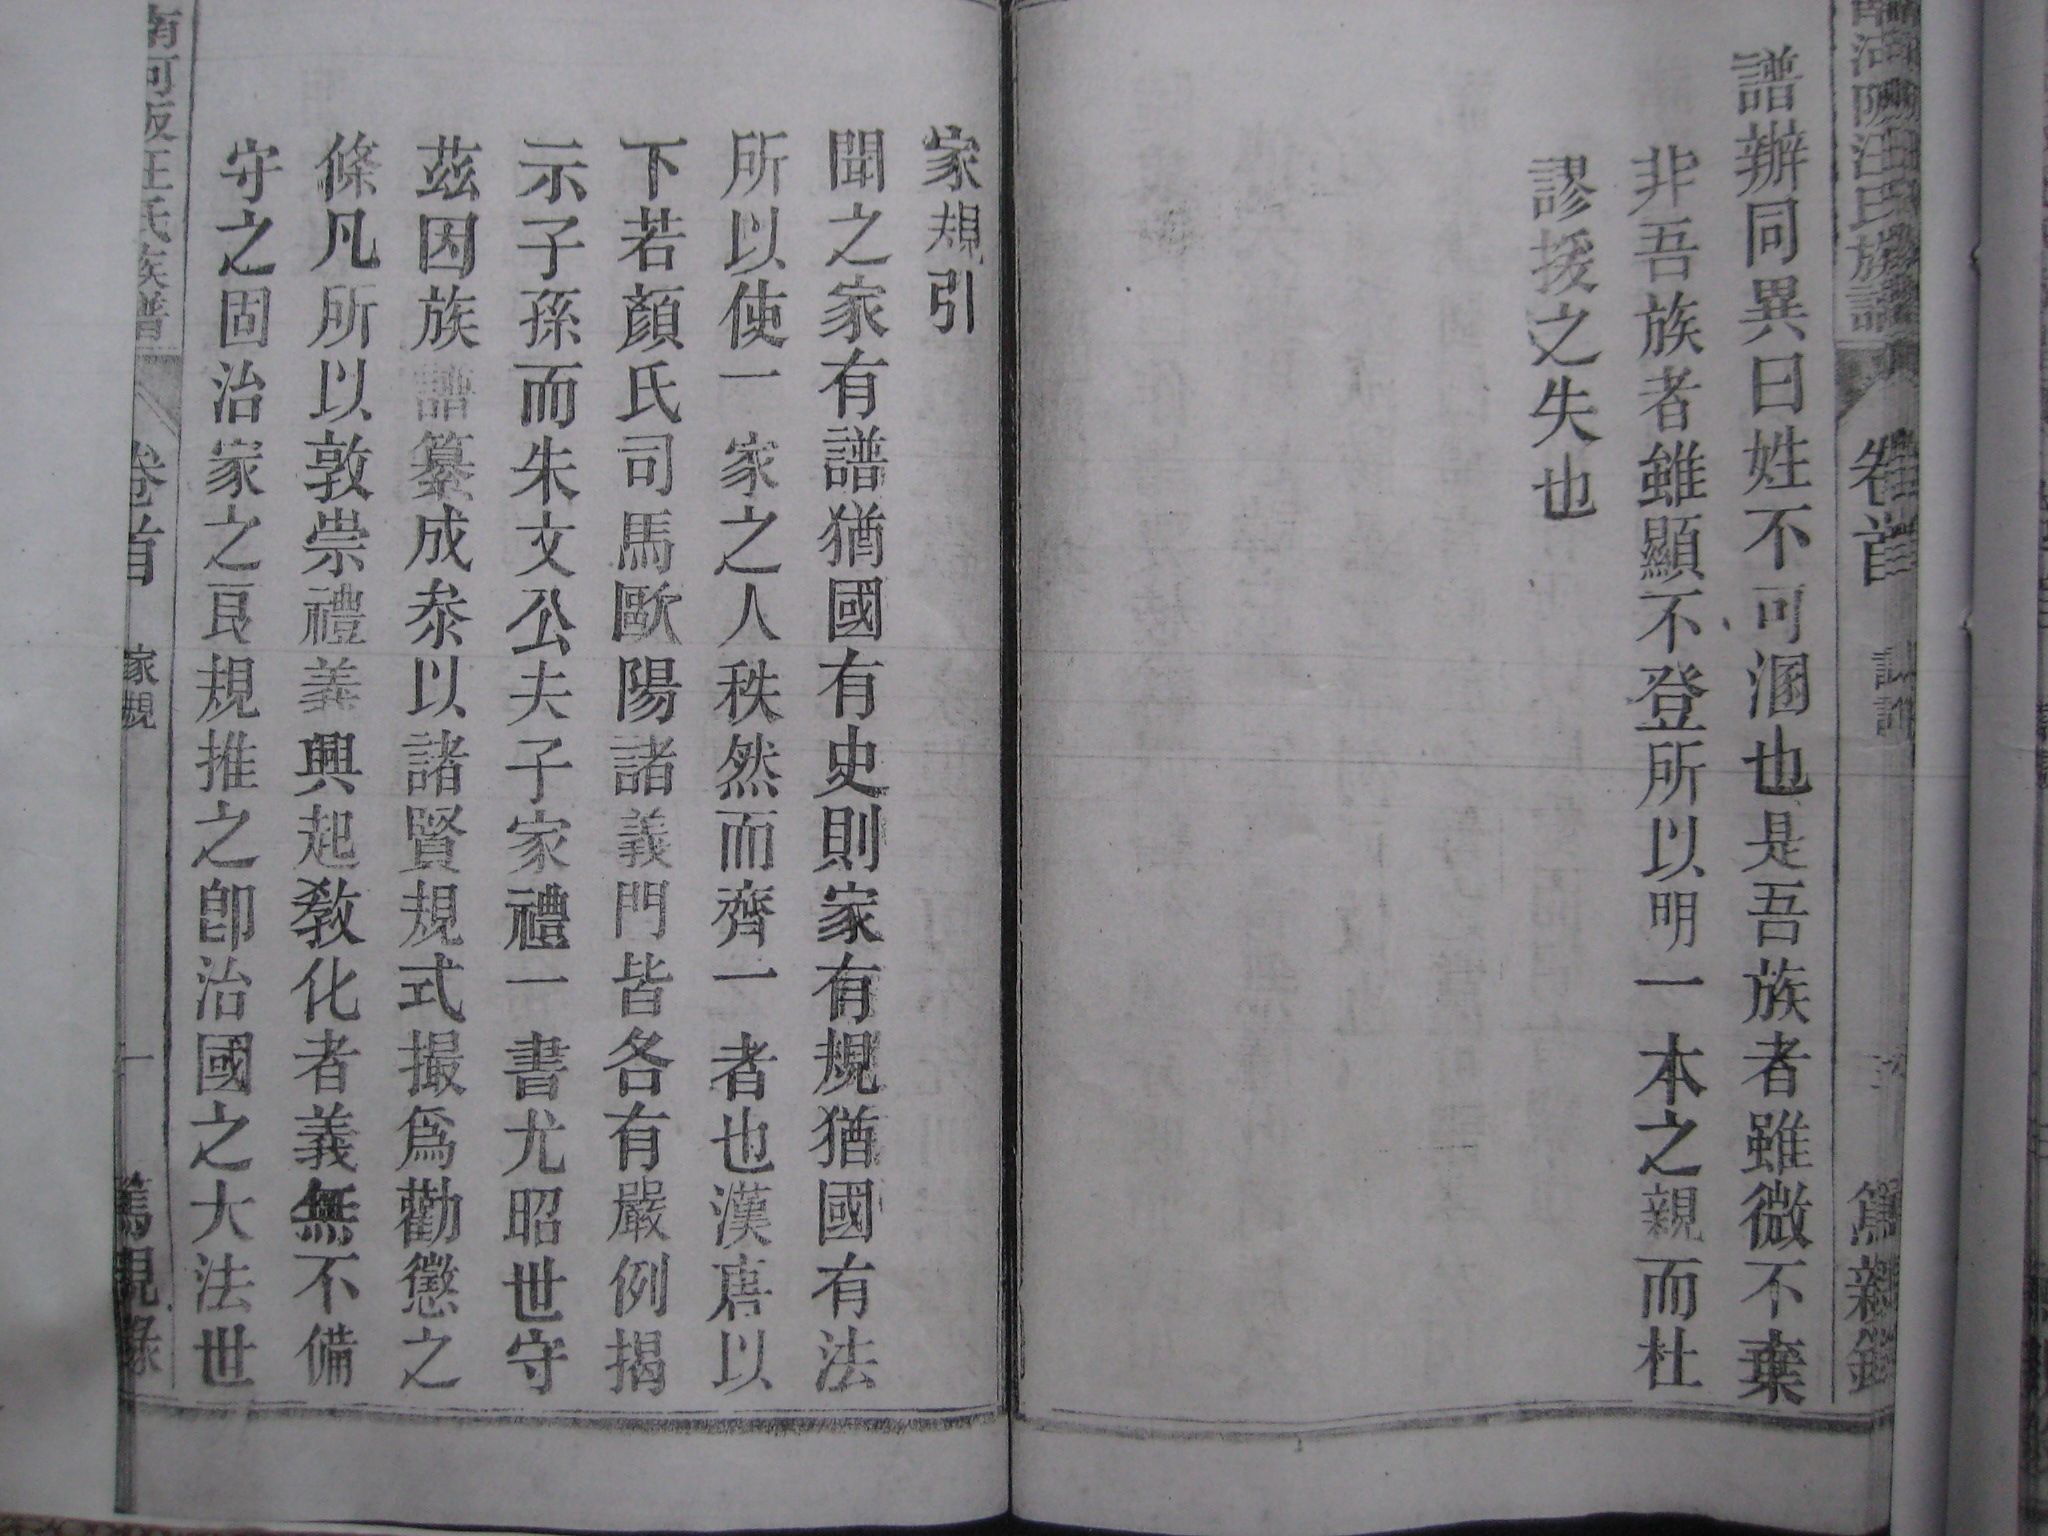 卷首
譜辦同異曰姓不可溷也是吾族者雖微不棄
非吾族者雖顯不登所以明一本之親而杜
謬援之失也
家規引
聞之家有譜猶國有史則家有規猶國有法
所以使一家之人秩然而齊一者也漢唐以
下若顏氏司馬歐陽諸義門皆各有嚴例揭
示子孫而朱文公夫子家禮一書尤昭世守
茲因族譜纂成叅以諸賢規式撮爲勸懲之
條凡所以敦崇禮義興起敎化者義無不備
守之固治家之良規推之卽治國之大法世
汪氏族譜
卷首
家規
一